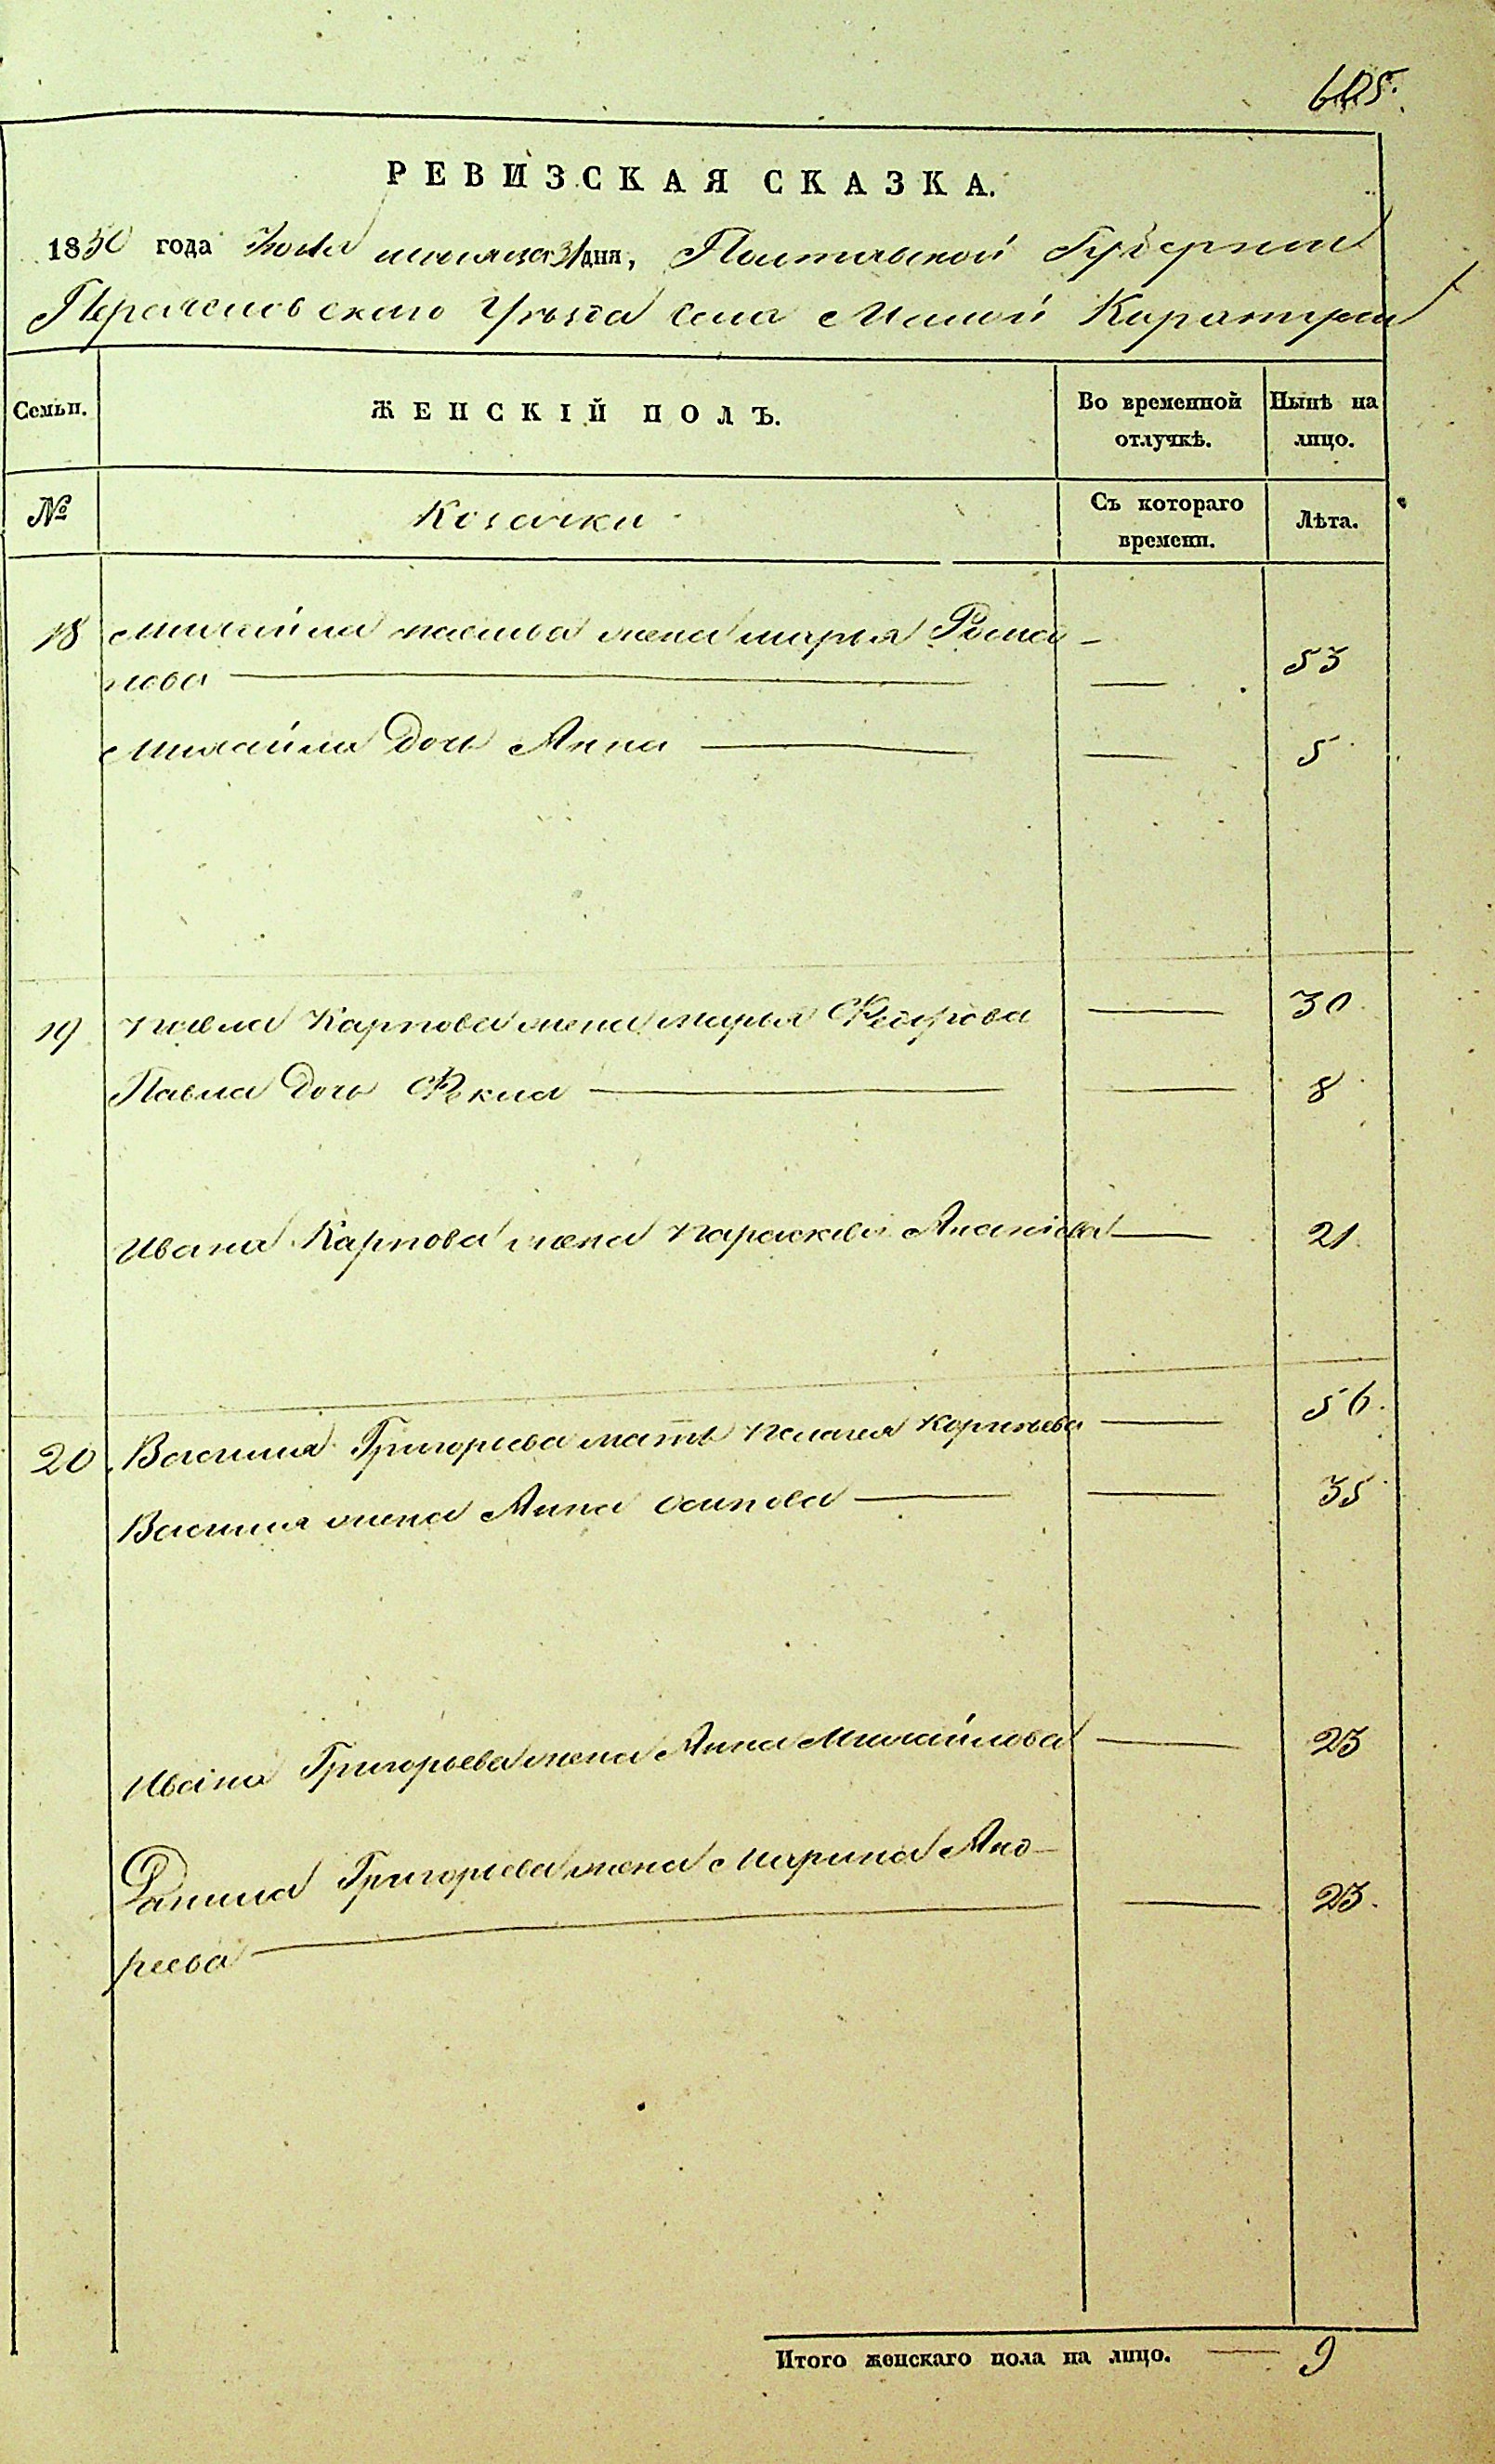 605.
РЕВИЗСКАЯ СКАЗКА.
1850 года Июля месяца 31 дня, Полтавской Губернии
Переясловского Уѣзда Села Малой Каратули
Семьи. ЖЕНСКІЙ ПОЛЪ. Во временной отлучкѣ. Нынѣ на лицо.
№ Козачки Съ котораго времени. Лѣта.
18 Михайла жена Марья Рома-
нова 53
Михайла дочь Анна 5
19 Павла Карпова жена Марья Федорова 30
Павла дочь Фекла 8
Ивана Карпова жена Параскева Ананіева 21
20 Василия Григорьева мать Пелагея Корнѣева 56.
Василия жена Анна Осипова 35
Ивана Григорьева жена Анна Михайлова 23
Данила Григорьева жена Марина Анд-
реева 23.
Итого женскаго пола на лицо. 9